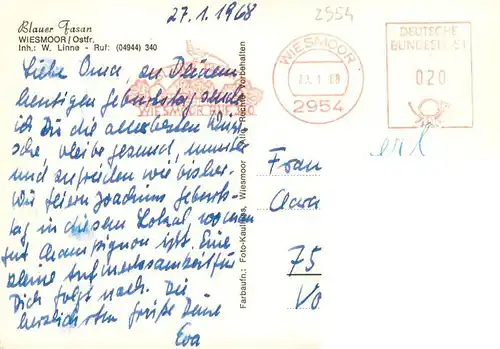 27.1.1968
2954
Blauer Fasan
WIESMOOR/Ostfr.
Inh.: W. Linne - Ruf: (04944) 340
Liebe Oma, an Deinem
heutigen Geburtstag sende
ich Dir die allerbesten Wün-
sche, bleibe gesund, munter
und zufrieden wie bisher.
Wir feiern Joachims Geburts-
tag in diesem Lokal, wo man
gut Champignon ißt. Eine
kleine Aufmerksamkeit für
Dich folgt nach. Die
herzlichsten Grüße Deine
Eva
WIESMOOR
2954
DEUTSCHE
BUNDESPOST
020
Farbaufn.: Foto-Kaufhaus, Wiesmoor Alle Rechte Vorbehalten
Frau
Clara
75